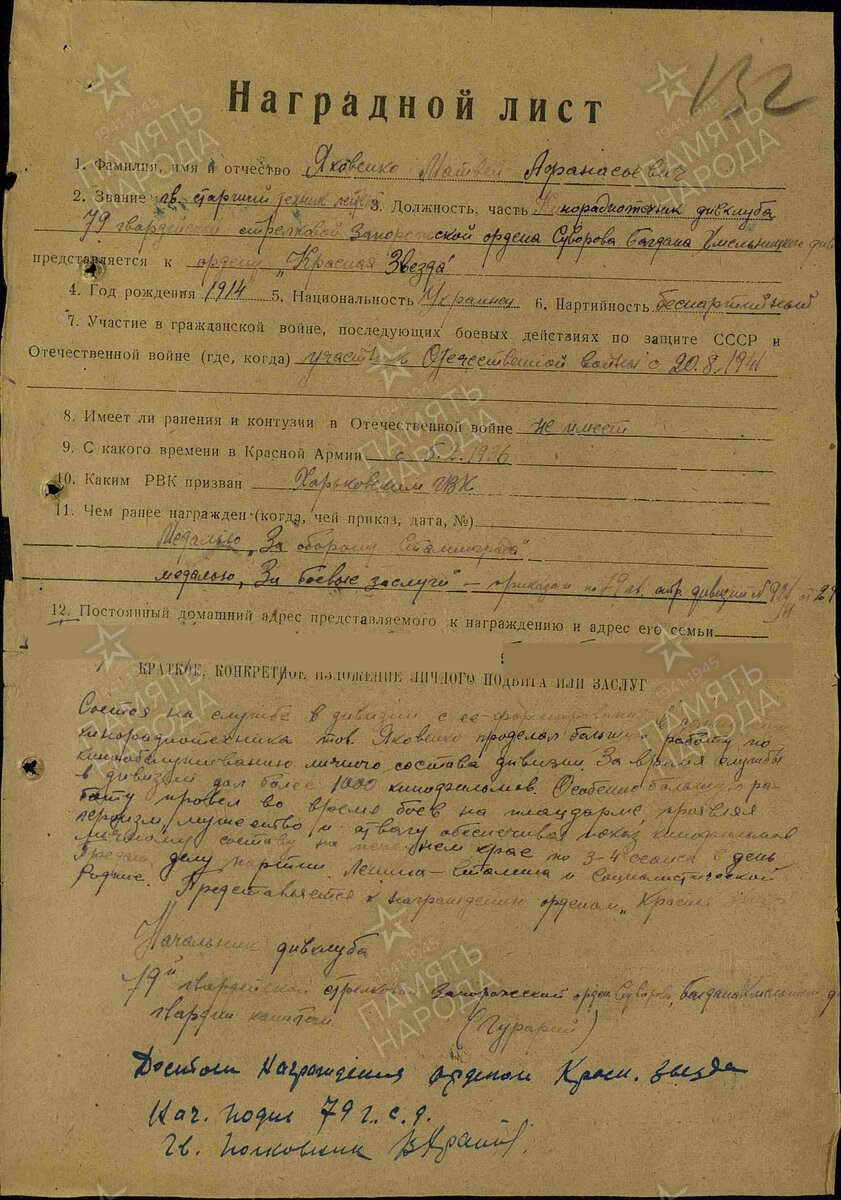 132
Наградной лист
1. Фамилия, имя и отчество Яковенко Матвей Афанасьевич
2. Звание гв. старший техник лейт 3. Должность, часть Кинорадиотехник дивклуба
79 гвардейской стрелковой Запорожской ордена Суворова Богдана Хмельницкого див
представляется к ордену „Красная Звезда"
4. Год рождения 1914 5. Национальность Украинец 6. Партийность беспартийный
7. Участие в гражданской войне, последующих боевых действиях по защите СССР и
Отечественной войне (где, когда) участник Отечественной войны с 20.8.1941
8. Имеет ли ранения и контузии в Отечественной войне не имеет
9. С какого времени в Красной Армии с 1936
10. Каким РВК призван Харьковским ГВК
11. Чем ранее награжден (когда, чей приказ, дата, №)
Медалью „За оборону Сталинграда"
медалью „За боевые заслуги" – приказом по 79 гв. стр. дивизии №
12. Постоянный домашний адрес представляемого к награждению и адрес его семьи
КРАТКОЕ, КОНКРЕТНОЕ ИЗЛОЖЕНИЕ ЛИЧНОГО ПОДВИГА ИЛИ ЗАСЛУГ
Состоя на службе в дивизии с ее формирования в должности
кинорадиотехника тов. Яковенко проделал большую работу по
кинообслуживанию личного состава дивизии. За время службы
в дивизии дал более 1000 кинофильмов. Особенно большую ра-
боту провел во время боев на плацдарме, проявляя
героизм, мужество и отвагу обеспечивая показ кинофильмов
личному составу на переднем крае по 3-4 сеанса в день
Предан делу партии Ленина – Сталина и Социалистической
Родине. Представляется к награждению орденом „Красная Звезда
Начальник дивклуба
79й гвардейской стрелковой Запорожской орден Суворова, Богдана Хмельницкого д
гвардии капитан (Гурарий)
Достоин награждения орденом Красн. звезда
Нач. подив 79 г.с.д.
Гв. Полковник
ПАМЯТЬ НАРОДА
1941-1945